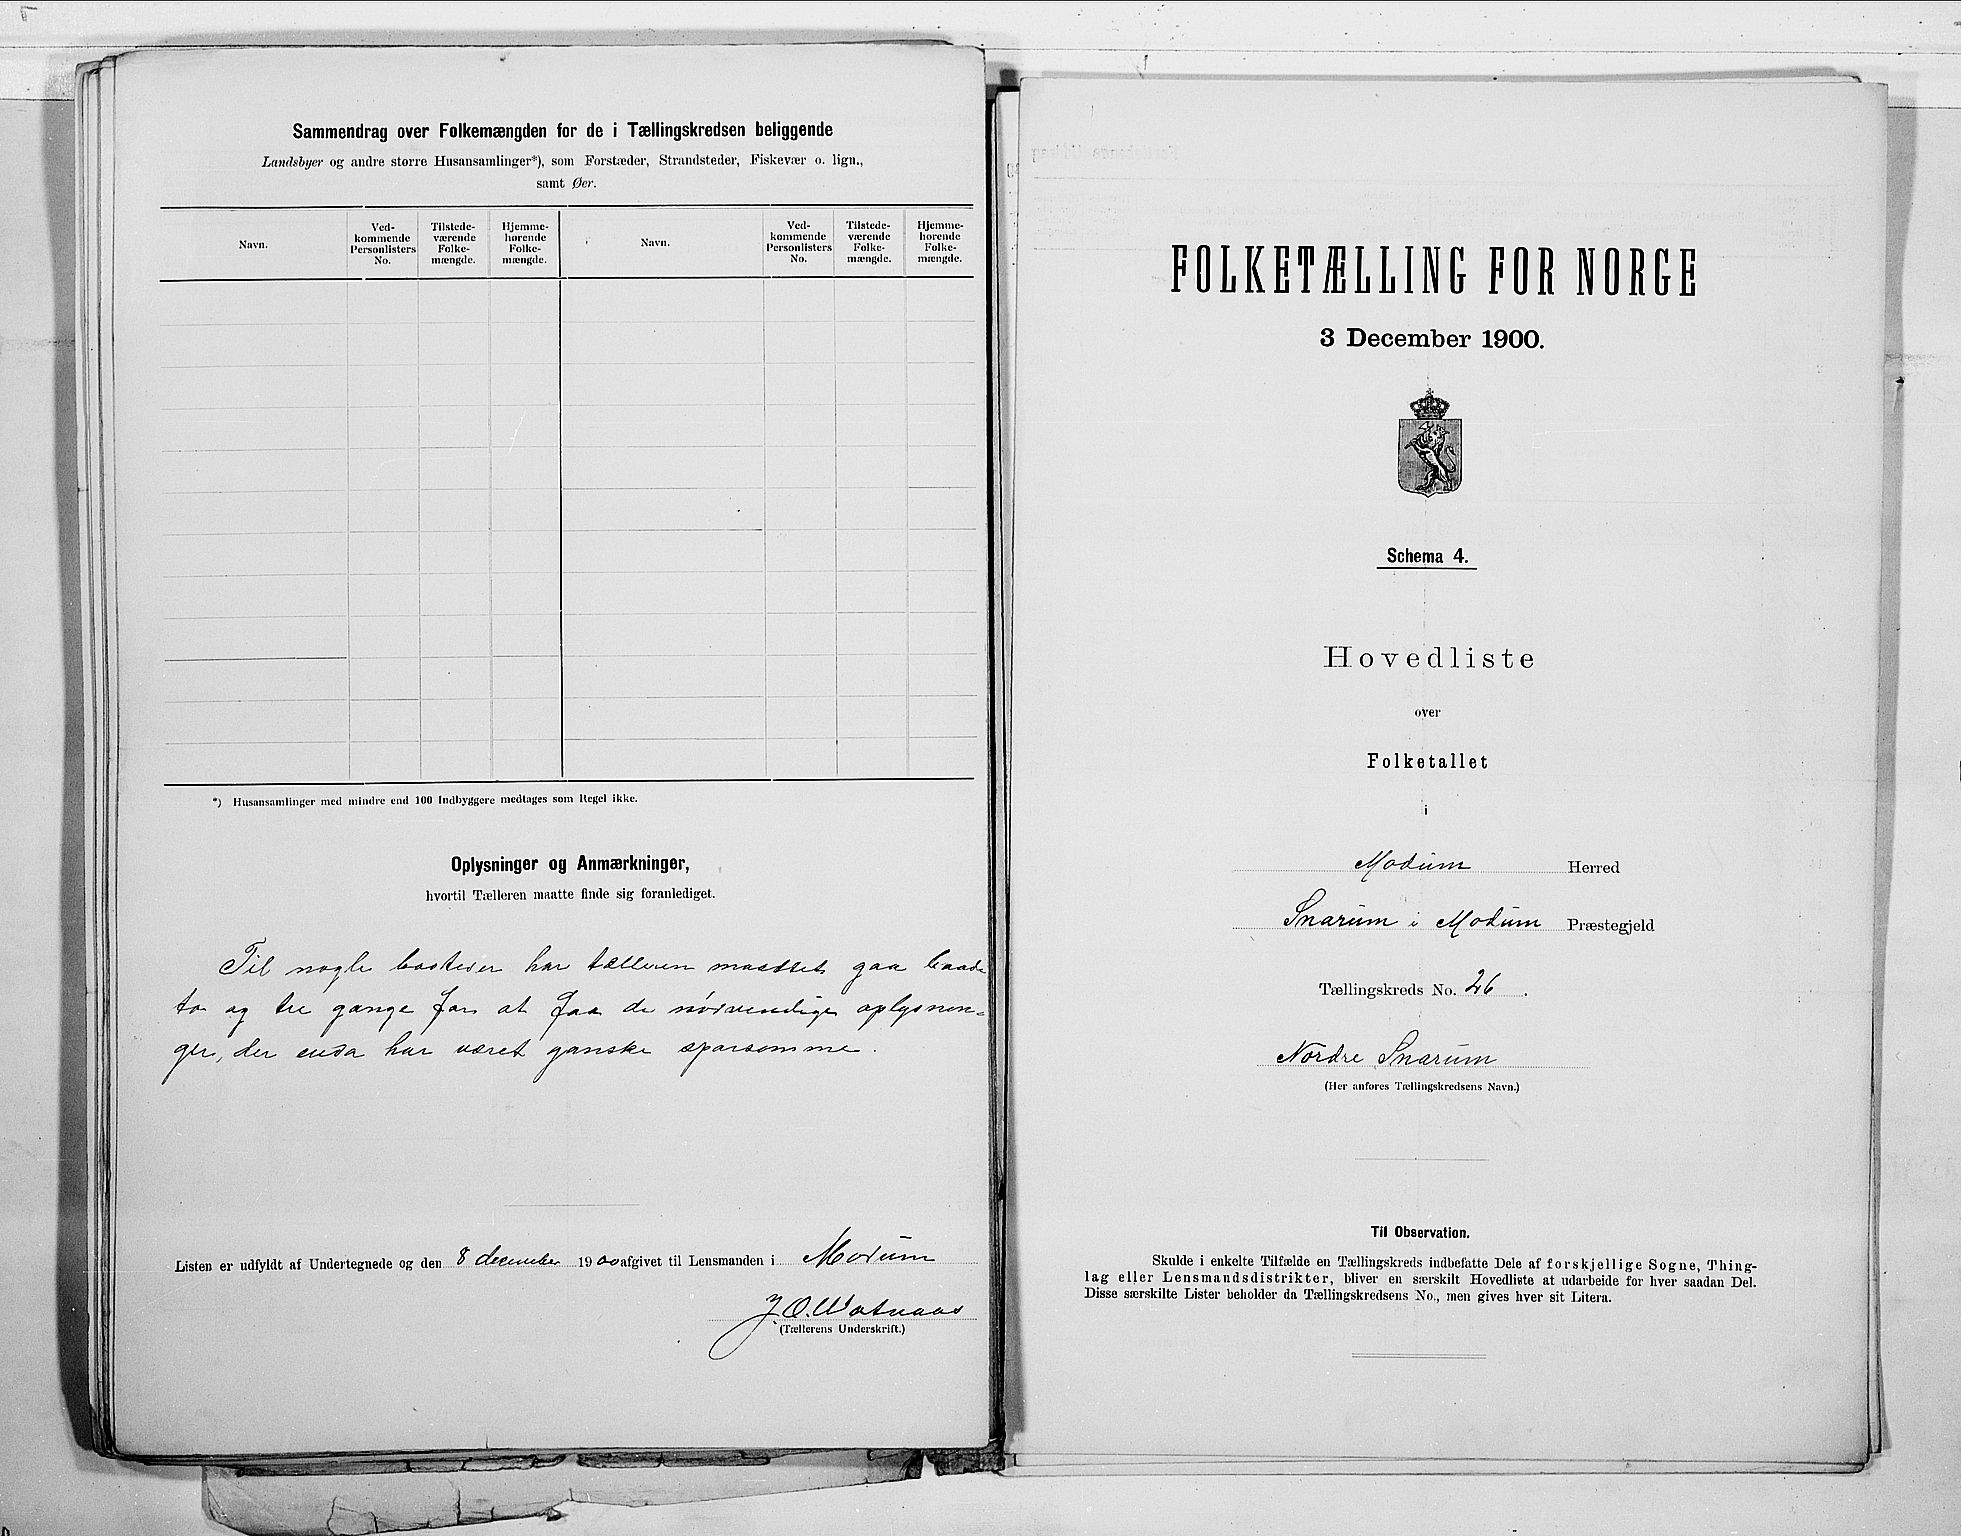 Sammendrag over Folkemængden for de i Tællingskredsen beliggende
Landsbyer og andre større Husansamlinger*), som Forstæder, Strandsteder, Fiskevær o. lign.,
samt Øer.
Navn.
Ved-
kommende
Personlisters
No.
Tilstede-
værende
Folke-
mængde.
Hjemme-
hørende
Folke-
mængde.
Navn.
Ved-
kommende
Personlisters
No.
Tilstede-
værende
Folke-
mængde.
Hjemme-
hørende
Folke-
mængde.
*) Husansamlinger med mindre end 100 Indbyggere medtages som Regel ikke.
Oplysninger og Anmærkninger,
hvortil Tælleren maatte finde sig foranlediget.
Til nogle bosteder har tælleren maattet gaa baade
to og tre gange for at faa de nødvendige oplysnin-
ger, der enda har været ganske sparsomme.
Listen er udfyldt af Undertegnede og den 8 december 1900 afgivet til Lensmanden i Modum
J. O. Watnaas
(Tællerens Underskrift.)
FOLKETÆLLING FOR NORGE
3 December 1900.
Schema 4.
Hovedliste
over
Folketallet
i
Modum Herred
Snarum i Modum Præstegjeld
Tællingskreds No. 26.
Nordre Snarum
(Her anføres Tællingskredsens Navn.)
Til Observation.
Skulde i enkelte Tilfælde en Tællingskreds indbefatte Dele af forskjellige Sogne, Thing-
lag eller Lensmandsdistrikter, bliver en særskilt Hovedliste at udarbeide for hver saadan Del.
Disse særskilte Lister beholder da Tællingskredsens No., men gives hver sit Litera.